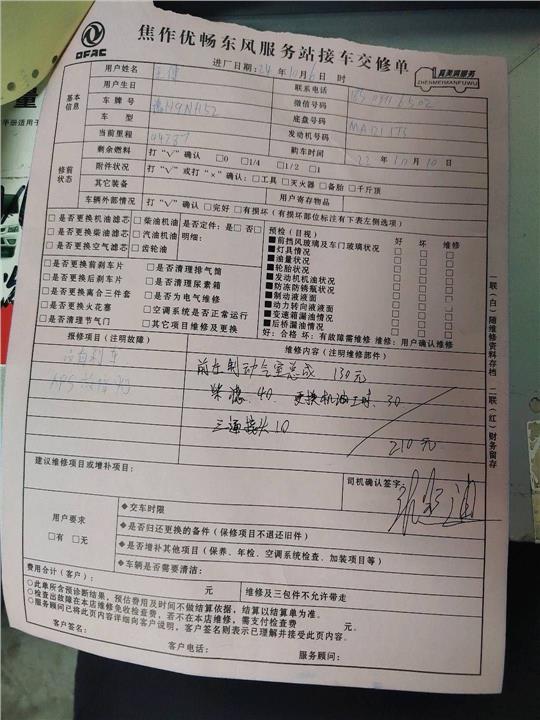 DFAC
焦作优畅东风服务站接车交修单
真美满服务
ZHENMEIMANFUWU
进厂日期:24年10月6日 时
基本信息
用户姓名 联系电话
用户生日 微信号码
车牌号 豫H9NH52 底盘号码
车型 发动机号码
当前里程 购车时间 22年 月10日
修前状态
剩余燃料 打“√”确认 □0 □1/4 □1/2 □1
附件状况 打“√”或打“×”确认:□工具 □灭火器 □备胎 □千斤顶
其它装备 用户寄存物品
车辆外部情况 打“√”确认 □完好 □有损坏(有损坏部位标注有下表左侧选项)
□是否更换机油滤芯 □柴油机油
□是否更换柴油滤芯 □汽油机油
□是否更换空气滤芯 □齿轮油
是否定件:是□否□
明细:
□是否更换前刹车片 □是否清理排气筒
□是否更换后刹车片 □是否清理尿素箱
□是否更换离合三件套 □是否为电气维修
□是否更换火花塞 □空调系统是否正常运行
□是否清理节气门 □其它项目维修及更换
预检(目视) 好 坏 维修
■前挡风玻璃及车门玻璃状况
■灯具情况
■油量状况
■轮胎状况
■发动机机油状况
■防冻防锈瓶状况
■制动液液面
■动力转向液液面
■变速箱漏油情况
■后桥漏油情况
好:合格 坏:有故障需维修 维修:用户确认维修
报修项目(注明故障) 维修内容(注明维修部件)
前左制动气室总成 130元
柴滤.40 更换机油工时.30
三通接头10
210元
建议维修项目或增补项目:
司机确认签字:
用户要求
□有 □无
◆交车时限
◆是否归还更换的备件(保修项目不退还旧件)
◆是否增补其他项目(保养、年检、空调系统检查、加装项目等)
◆车辆是否需要清洁:
费用合计(客户): 元 维修及三包件不允许带走
○此单所含预诊断结果,预估费用及时间不做结算依据,结算以结算单为准。
○检查出故障在本店维修免收检查费,若不在本店维修,需支付检查费 元。
○服务顾问已将此页内容详细向客户说明,客户签名则表示已理解并接受此页内容。
客户签名: 客户电话: 服务顾问:
一联(白)随维修资料存档 二联(红)财务留存